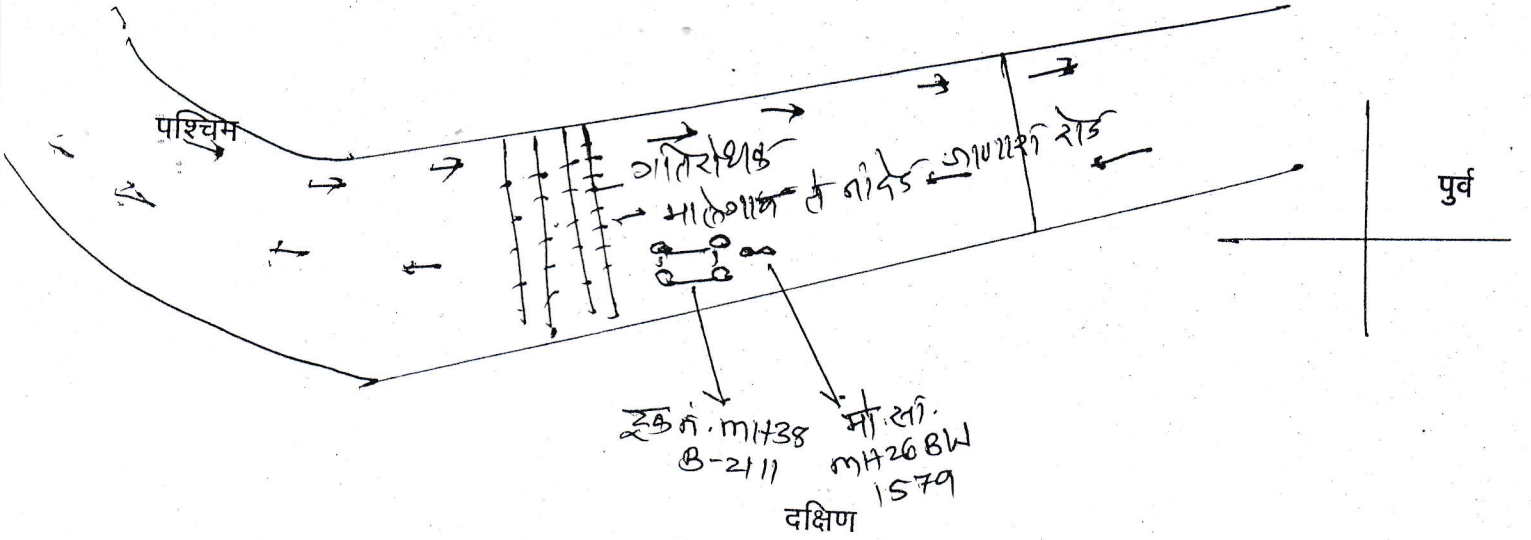 पश्चिम
गतिरोधक
मालेगाव ते नांदेड जाणारा रोड
पुर्व
ट्रक नं. MH38
B-2111
मो.सा.
MH26BW
1579
दक्षिण